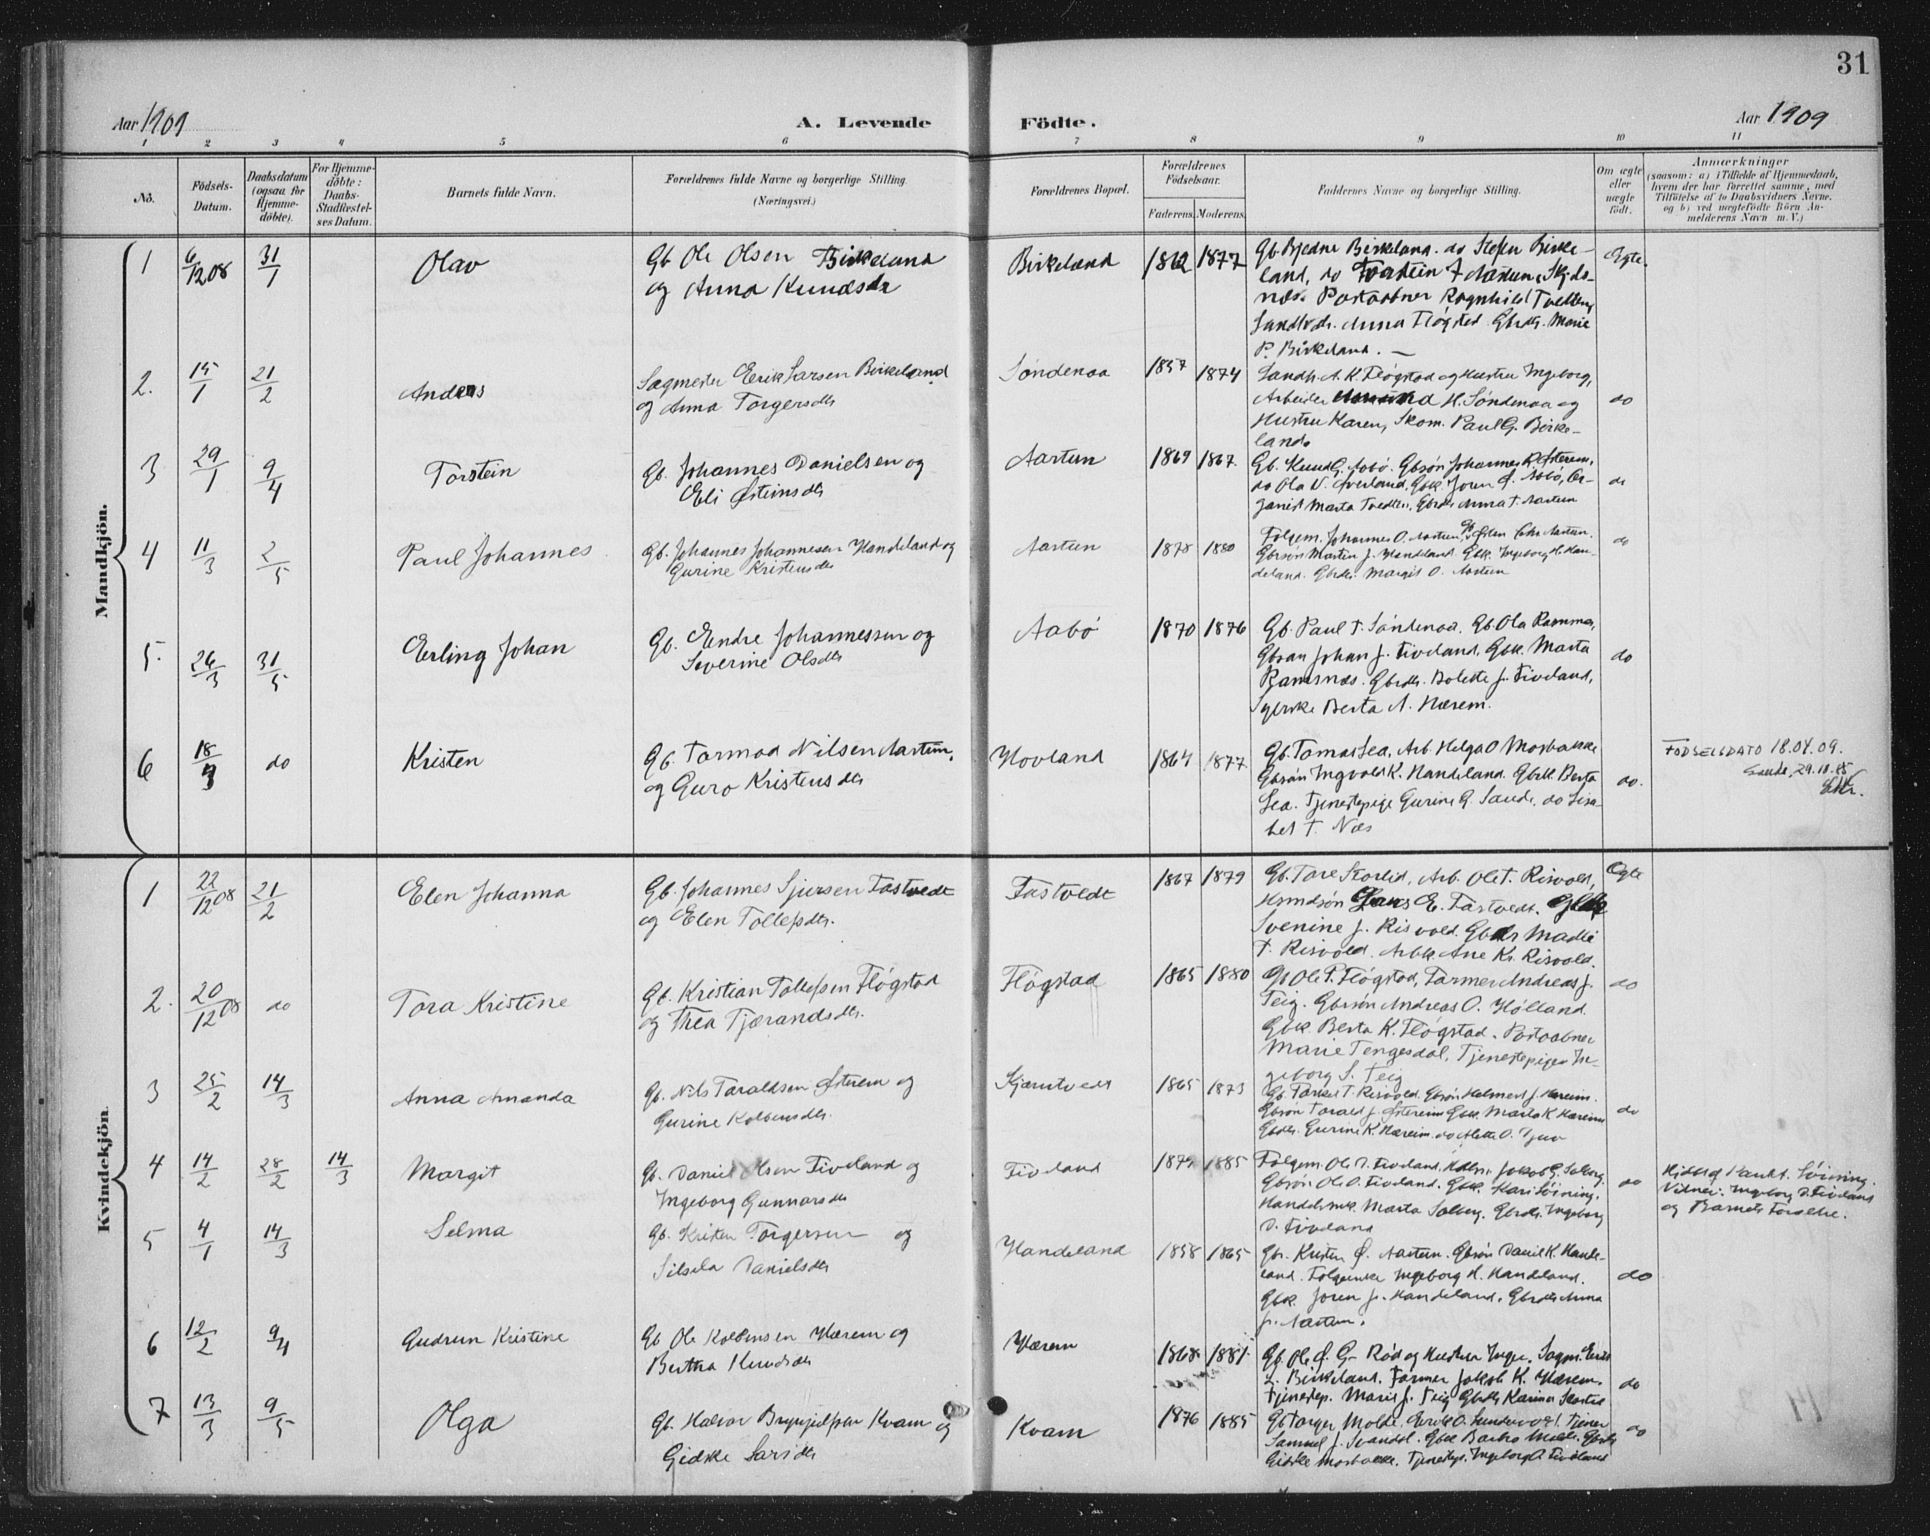 31
Aar 1909
A. Levende
Födte.
Aar 1909
1 2 3 4 5 6 7 8 9 10 11
No.
Födsels-
Datum.
Daabsdatum
(ogsaa for
Hjemme-
döbte).
For Hjemme-
döbte:
Daabs-
Stadfæstel-
ses Datum.
Barnets fulde Navn.
Forældrenes fulde Navne og borgerlige Stilling.
(Næringsvei.)
Forældrenes Bopæl.
Forældrenes
Födselsaar.
Faderens. Moderens.
Faddernes Navne og borgerlige Stilling.
Om ægte
eller
uægte
födt.
Anmærkninger
(saasom: a) i Tilfælde af Hjemmedaab,
hvem der har forrettet samme, med
Tilföielse af to Daabsvidners Navne.
og b) ved uægtefödte Börn An-
melderens Navn m. V.)
Mandkjön.
1 6/12 08 31/1 Olav
Gb Ole Olsen Birkeland
og Anna Knudsdr
Birkeland 1862 1877
Gb. Bjedne Birkeland. do Steffen Birke-
land, do Torstein Aartun, Skjds-
næs. Postaabner Ragnhild Tvedten,
Landh.dr. Anna Fløgstad. Gbrdr. Marie
P. Birkeland. —
Egte.
2. 15/1 21/2 Andreas
Sagmester Eerik Larsen Birkeland
og Anna Torgersdtr
Søndenaa 1857 1874
Landh. A. K. Fløgstad og Hustru Ingeborg,
Arbeider Amund H. Søndenaa og
Hustru Karen, Skom. Paul G. Birke-
land.
do
3 29/1 9/4 Torstein
Gb. Johannes Danielsen og
Eli Østeinsdtr
Aartun 1869 1867.
Gb. Knud G. Aabø. Gbsøn Johannes R. Østerem,
do Ola V. Øverland. Gbk Joren Ø. Aabø, Or-
ganist Marta Tvedten, Gbrdr. Anna T. Aartun
do
4 11/3 2/5 Paul Johannes
Gb. Johannes Johannesen Handeland og
Gurine Kristensdtr
Aartun 1878 1880
Folgem. Johannes O. Aartun, Gb. Østen Aartun.
Gbrsøn Martin J. Handeland Gbk. Ingeborg H. Han-
deland. Gbrdr. Margit O. Aartun
do
5. 26/3 31/5 Erling Johan
Gb. Endre Johannessen og
Severine Olsdtr
Aabø 1870 1876
Gb. Paul T. Søndenaa. Gb. Ola Ramnes,
Gbsøn Johan J. Tiveland, Gbk. Marta
Ramsnæs. Gbrdr. Bolette J. Tiveland,
Syerske Berta N. Hærem.
do
6 18/3 do Kristen
Gb. Tormod Nilsen Aartun,
og Guro Kristensdtr
Hovland 1864 1877
Gb. Tomas Lea, Arb. Helga O Mosbakke
Gbrsøn Ingvald K. Handeland. Gbrk. Berta
Lea. Tjenestepige Gurine G. Sande, do Lisa-
bet T. Næs
do.
FØDSELSDATO 18.04.09.
Sauda, 29.10.85
Kvindekjön.
1 22/12 08 21/2 Elen Johanna
Gb. Johannes Sjursen Fastvedt
og Elen Tollefsdtr.
Fastvedt 1867 1879
Gb. Tore Skorlid, Arb. Ole T. Risvold,
Hsmdsøn Lars E. Fastvedt. Gbk
Svenine J. Risvold. Gbdr Madli
T. Risvold. Arbk Ane K. Risvold.
Egte
2. 20/12 08 do Tora Kristine
Gb. Kristian Tollefsen Fløgstad
og Thea Tjærandsdtr.
Fløgstad 1865 1880
Gb Ole P. Fløgstad, Farmer Andreas J.
Teig. Gbrsøn Andreas O. Hølland.
Gbk. Berta K. Fløgstad. Postaabner
Marie Tengesdal, Tjenestepige In-
geborg S. Teig
do
3 25/2 14/3 Anna Amanda
Gb. Nils Taraldsen Østerem og
Gurine Kolbensdtr.
Kjærntvedt 1865 1873
Gb. Torkel T. Risvold. Gbrsøn Halmert J. Hæreim.
Gbrsøn Tarald J. Østereim Gbk. Marta K. Hæreim
Gbrdr. Gurine K. Hæreim. do Alette O. Tjuv
do
4 14/2 28/2 14/3 Margit
Gb. Daniel Olsen Tiveland og
Ingeborg Gunnarsdtr
Tiveland 1879 1885
Folgem. Ole D. Tiveland. Jakob G. Solberg.
Gbrsøn Ole O. Tiveland. Gbk. Kari Søvning,
Handelsmk. Marta Solberg. Gbrdr. Ingeborg
D. Tiveland
do
Hjdbt af Søvning.
Vidner: Ingeborg D. Tiveland
og Barnets Forældre.
5 4/1 14/3 Selma
Gb. Kristen Torgersen og
Silsela Danielsdtr
Handeland 1858 1865
Gb. Kristen Ø. Aartun. Gbrsøn Daniel K. Hande-
land. Folgeenke Ingeborg H. Handland.
Gbk. Joren J. Handeland. Gbrdr. Anna
J. Aartun.
do
6 12/2 9/4 Gudrun Kristine
Gb Ole Kolbensen Hærem og
Bertha Knudsdtr
Hærem 1868 1881.
Gb. Ole Ø. G. Rød og Hustru Inger. Sagm. Eerik
L. Birkeland. Farmer Jakob K. Hærem.
Tjenestep. Marie J. Teig Gbrdr. Karina Skorlid
do
7 13/3 9/5 Olga
Gb. Halvor Brynjulfsen Kvam og
Gidske Larsdtr
Kvam 1876 1885
Gb Torger Molde. Eerik O. Tjener
Samuel J. Svandal. Gbk Barbro Molde. Gbrdr
Gidske Mosbakke. Tjenestep. Ingeborg O. Tiveland
do